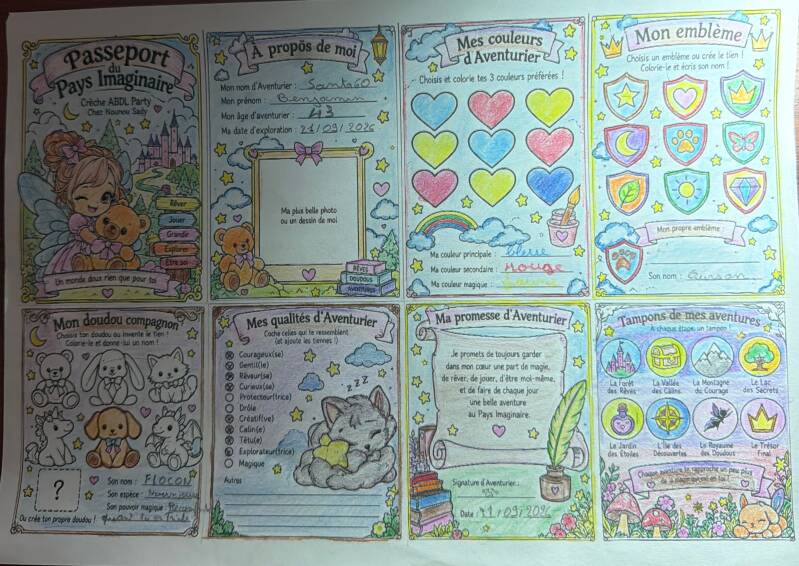 Passeport
du
Pays Imaginaire
Crèche ABDL Party
Chez Nounou Sady
Rêver
Jouer
Grandir
Explorer
Être soi
Un monde doux rien que pour toi
À propos de moi
Mon nom d'Aventurier : Santa60
Mon prénom : Benjamin
Mon âge d'aventurier : 43
Ma date d'exploration : 21/09/2026
Ma plus belle photo
ou un dessin de moi
RÊVES
DOUDOUS
AVENTURES
Mes couleurs
d'Aventurier
Choisis et colorie tes 3 couleurs préférées !
Ma couleur principale : bleue
Ma couleur secondaire : Rouge
Ma couleur magique :
Mon emblème
Choisis un emblème ou crée le tien !
Colorie-le et écris son nom !
Mon propre emblème :
Son nom : Ourson
Mon doudou compagnon
Choisis ton doudou ou invente le tien !
Colorie-le et donne-lui un nom !
?
Son nom : FLOCON
Son espèce :
Son pouvoir magique :
Ou crée ton propre doudou ! quand tu es triste
Mes qualités d'Aventurier
Coche celles qui te ressemblent
(et ajoute les tiennes !)
Courageux(se)
Gentil(le)
Rêveur(se)
Curieux(se)
Protecteur(trice)
Drôle
Créatif(ve)
Calin(e)
Têtu(e)
Explorateur(trice)
Magique
Autres
z z z
Ma promesse d'Aventurier
Je promets de toujours garder
dans mon cœur une part de magie,
de rêver, de jouer, d'être moi-même,
et de faire de chaque jour
une belle aventure
au Pays Imaginaire.
Signature d'Aventurier :
Date : 21/09/2026
Tampons de mes aventures
A chaque étape, un tampon !
La Forêt
des Rêves
La Vallée
des Câlins
La Montagne
du Courage
Le Lac
des Secrets
Le Jardin
des Étoiles
L'Île des
Découvertes
Le Royaume
des Doudous
Le Trésor
Final
Chaque aventure te rapproche un peu plus
de la magie qui est en toi !